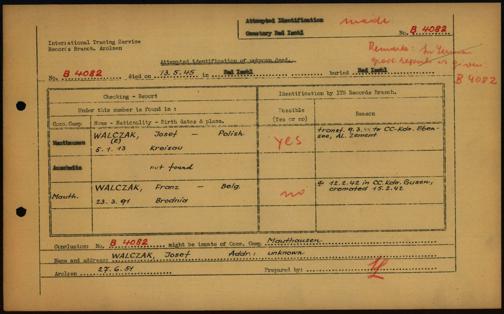 Attempted Identification made
Cemetery Bad Ischl No. B 4082
International Tracing Service
Records Branch. Arolsen
Remarks: In German
grave reports is given
B 4082
Attempted identification of unknown dead.
No. B 4082 died on 13.5.45 in Bad Ischl buried Bad Ischl
Checking - Report
Identification by ITS Records Branch.
Under this number is found in :
Possible
(Yes or no)
Reason
Conc.Camp Name - Nationality - Birth dates & place.
Mauthausen WALCZAK, Josef - Polish
5.1.13 Kroizau
yes
transf. 9.3. to CC-Kdo. Eben-
see, AL Zement
Auschwitz not found
Mauth. WALCZAK, Franz - Belg.
23.3.91 Brodnia
no
12.2.42 in CC Kdo. Gusen,
cremated 15.2.42
Conclusion: No. B 4082 might be inmate of Conc. Camp Mauthausen
Name and address: WALCZAK, Josef Addr: unknown
Arolsen 27.6.51 Prepared by: